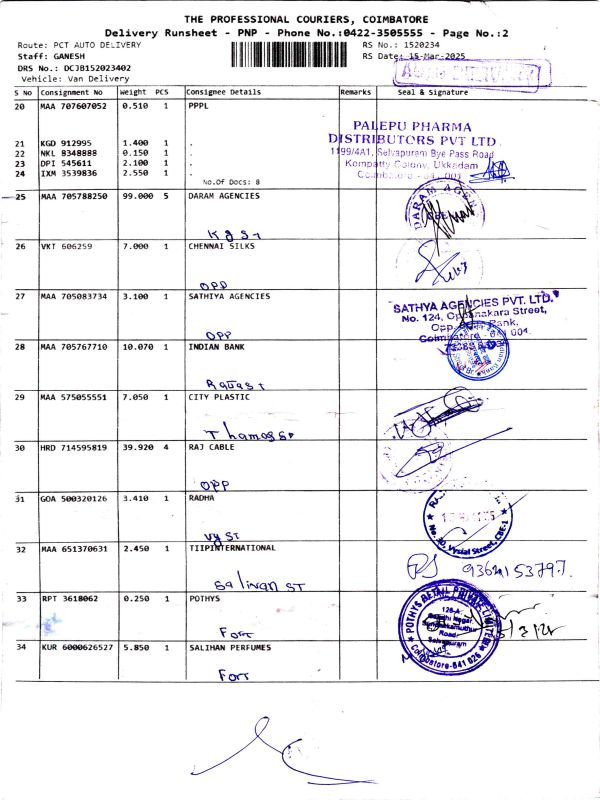 THE PROFESSIONAL COURIERS, COIMBATORE
Delivery Runsheet - PNP - Phone No.:0422-3505555 - Page No.:2
Route: PCT AUTO DELIVERY RS No.: 1520234
Staff: GANESH RS Date: 15-Mar-2025
DRS No.: DCJB152023402
Vehicle: Van Delivery
AUTO DELIVERY
S No Consignment No Weight PCS Consignee Details Remarks Seal & Signature
20 MAA 707607052 0.510 1 PPPL
PALEPU PHARMA
DISTRIBUTORS PVT LTD
21 KGD 912995 1.400 1 .
1199/4A1, Selvapuram Bye Pass Road
22 NKL 8348888 0.150 1 .
23 DPI 545611 2.100 1 .
Kompatty Colony, Ukkadam
24 IXM 3539836 2.550 1 .
Coimbatore - 641 001
No.Of Docs: 8
25 MAA 705788250 99.000 5 DARAM AGENCIES
DARAM AGEN
CBE
K G St
26 VKT 606259 7.000 1 CHENNAI SILKS
OPP
27 MAA 705083734 3.100 1 SATHIYA AGENCIES
SATHYA AGENCIES PVT. LTD.
No. 124, Oppanakara Street,
Opp. Bank,
OPP
Coimbatore - 641 001.
28 MAA 705767710 10.070 1 INDIAN BANK
29 MAA 575055551 7.050 1 CITY PLASTIC
Thomas St
30 HRD 714595819 39.920 4 RAJ CABLE
OPP
31 GOA 500320126 3.410 1 RADHA
No. 30, Vysial Street, CBE-1
Vy ST
32 MAA 651370631 2.450 1 TIIPINTERNATIONAL
Salivan ST
33 RPT 3618062 0.250 1 POTHYS
POTHYS RETAIL PRIVATE LIMITED
126-A
Gandhi Nagar
Road
Selvapuram
Coimbatore-641 026
Fort
34 KUR 6000626527 5.850 1 SALIHAN PERFUMES
Fort